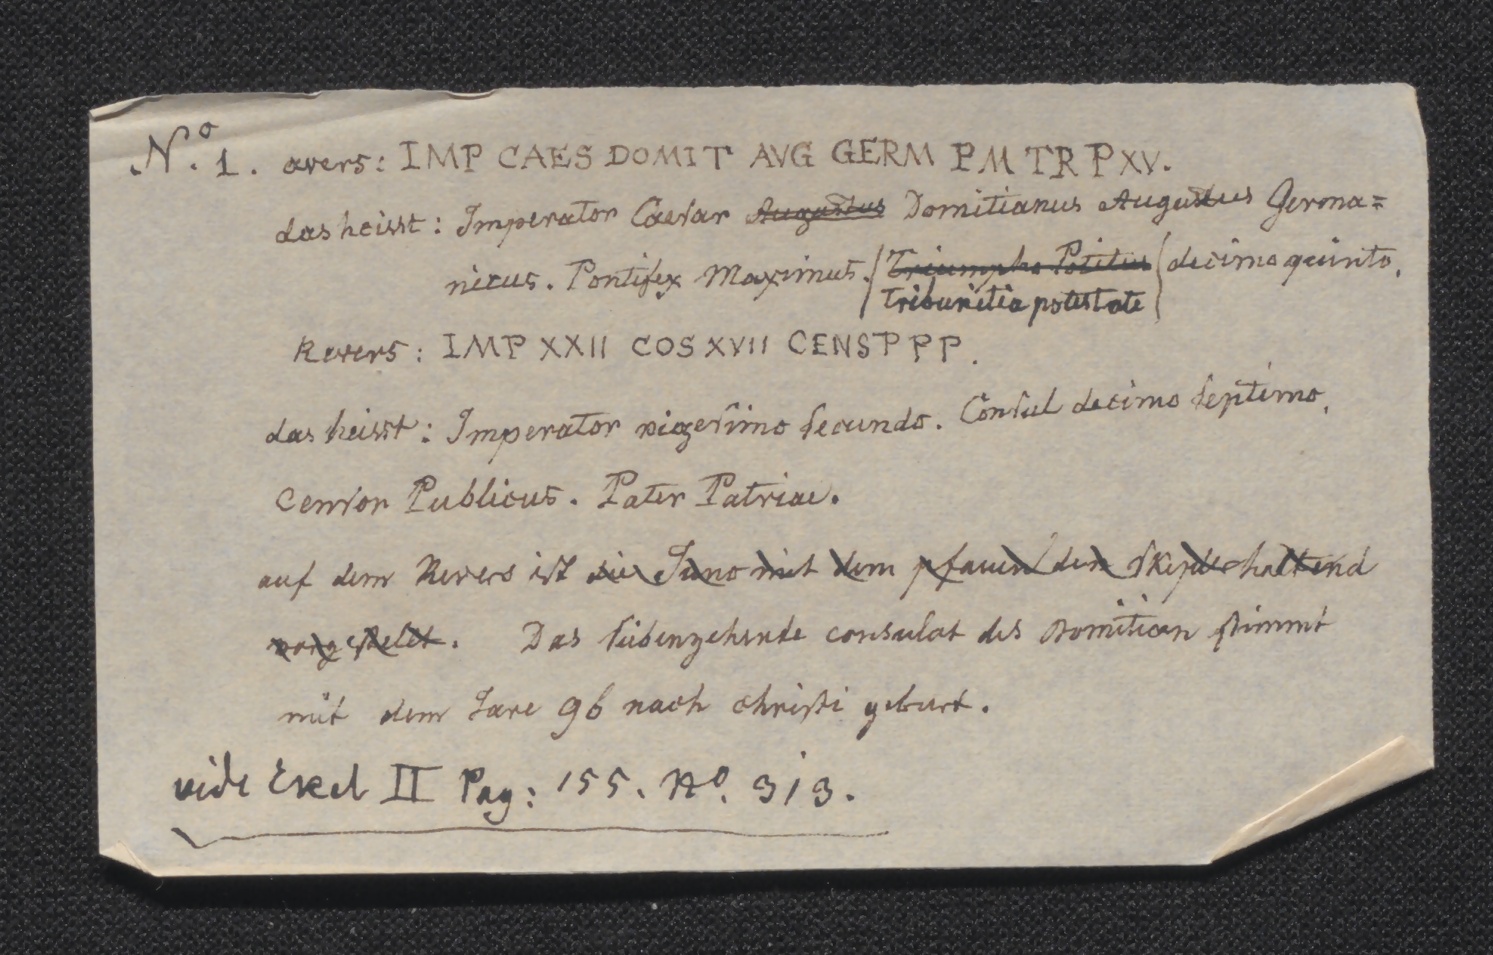 N.º 1. avers: IMP CAES DOMIT AVG GERM P M TR P XV.
das heisst: Imperator Caesar Augustus Domitianus Augustus Germa=
nicus. Pontifex Maximus. (Triumpho Potitus) decimo quinto.
tribunitia potestate
Revers: IMP XXII COS XVII CENS P P P.
das heisst: Imperator vigesimo secundo. Consul decimo septimo.
Censor Publicus. Pater Patriae.
auf dem Revers ist die Juno mit dem pfauen den skepter haltend
vorgestellt. Das siebenzehende consulat des Domitian stimmt
mit dem Jare 96 nach christi geburt.
vide Ekel II Pag: 155. Nº. 313.